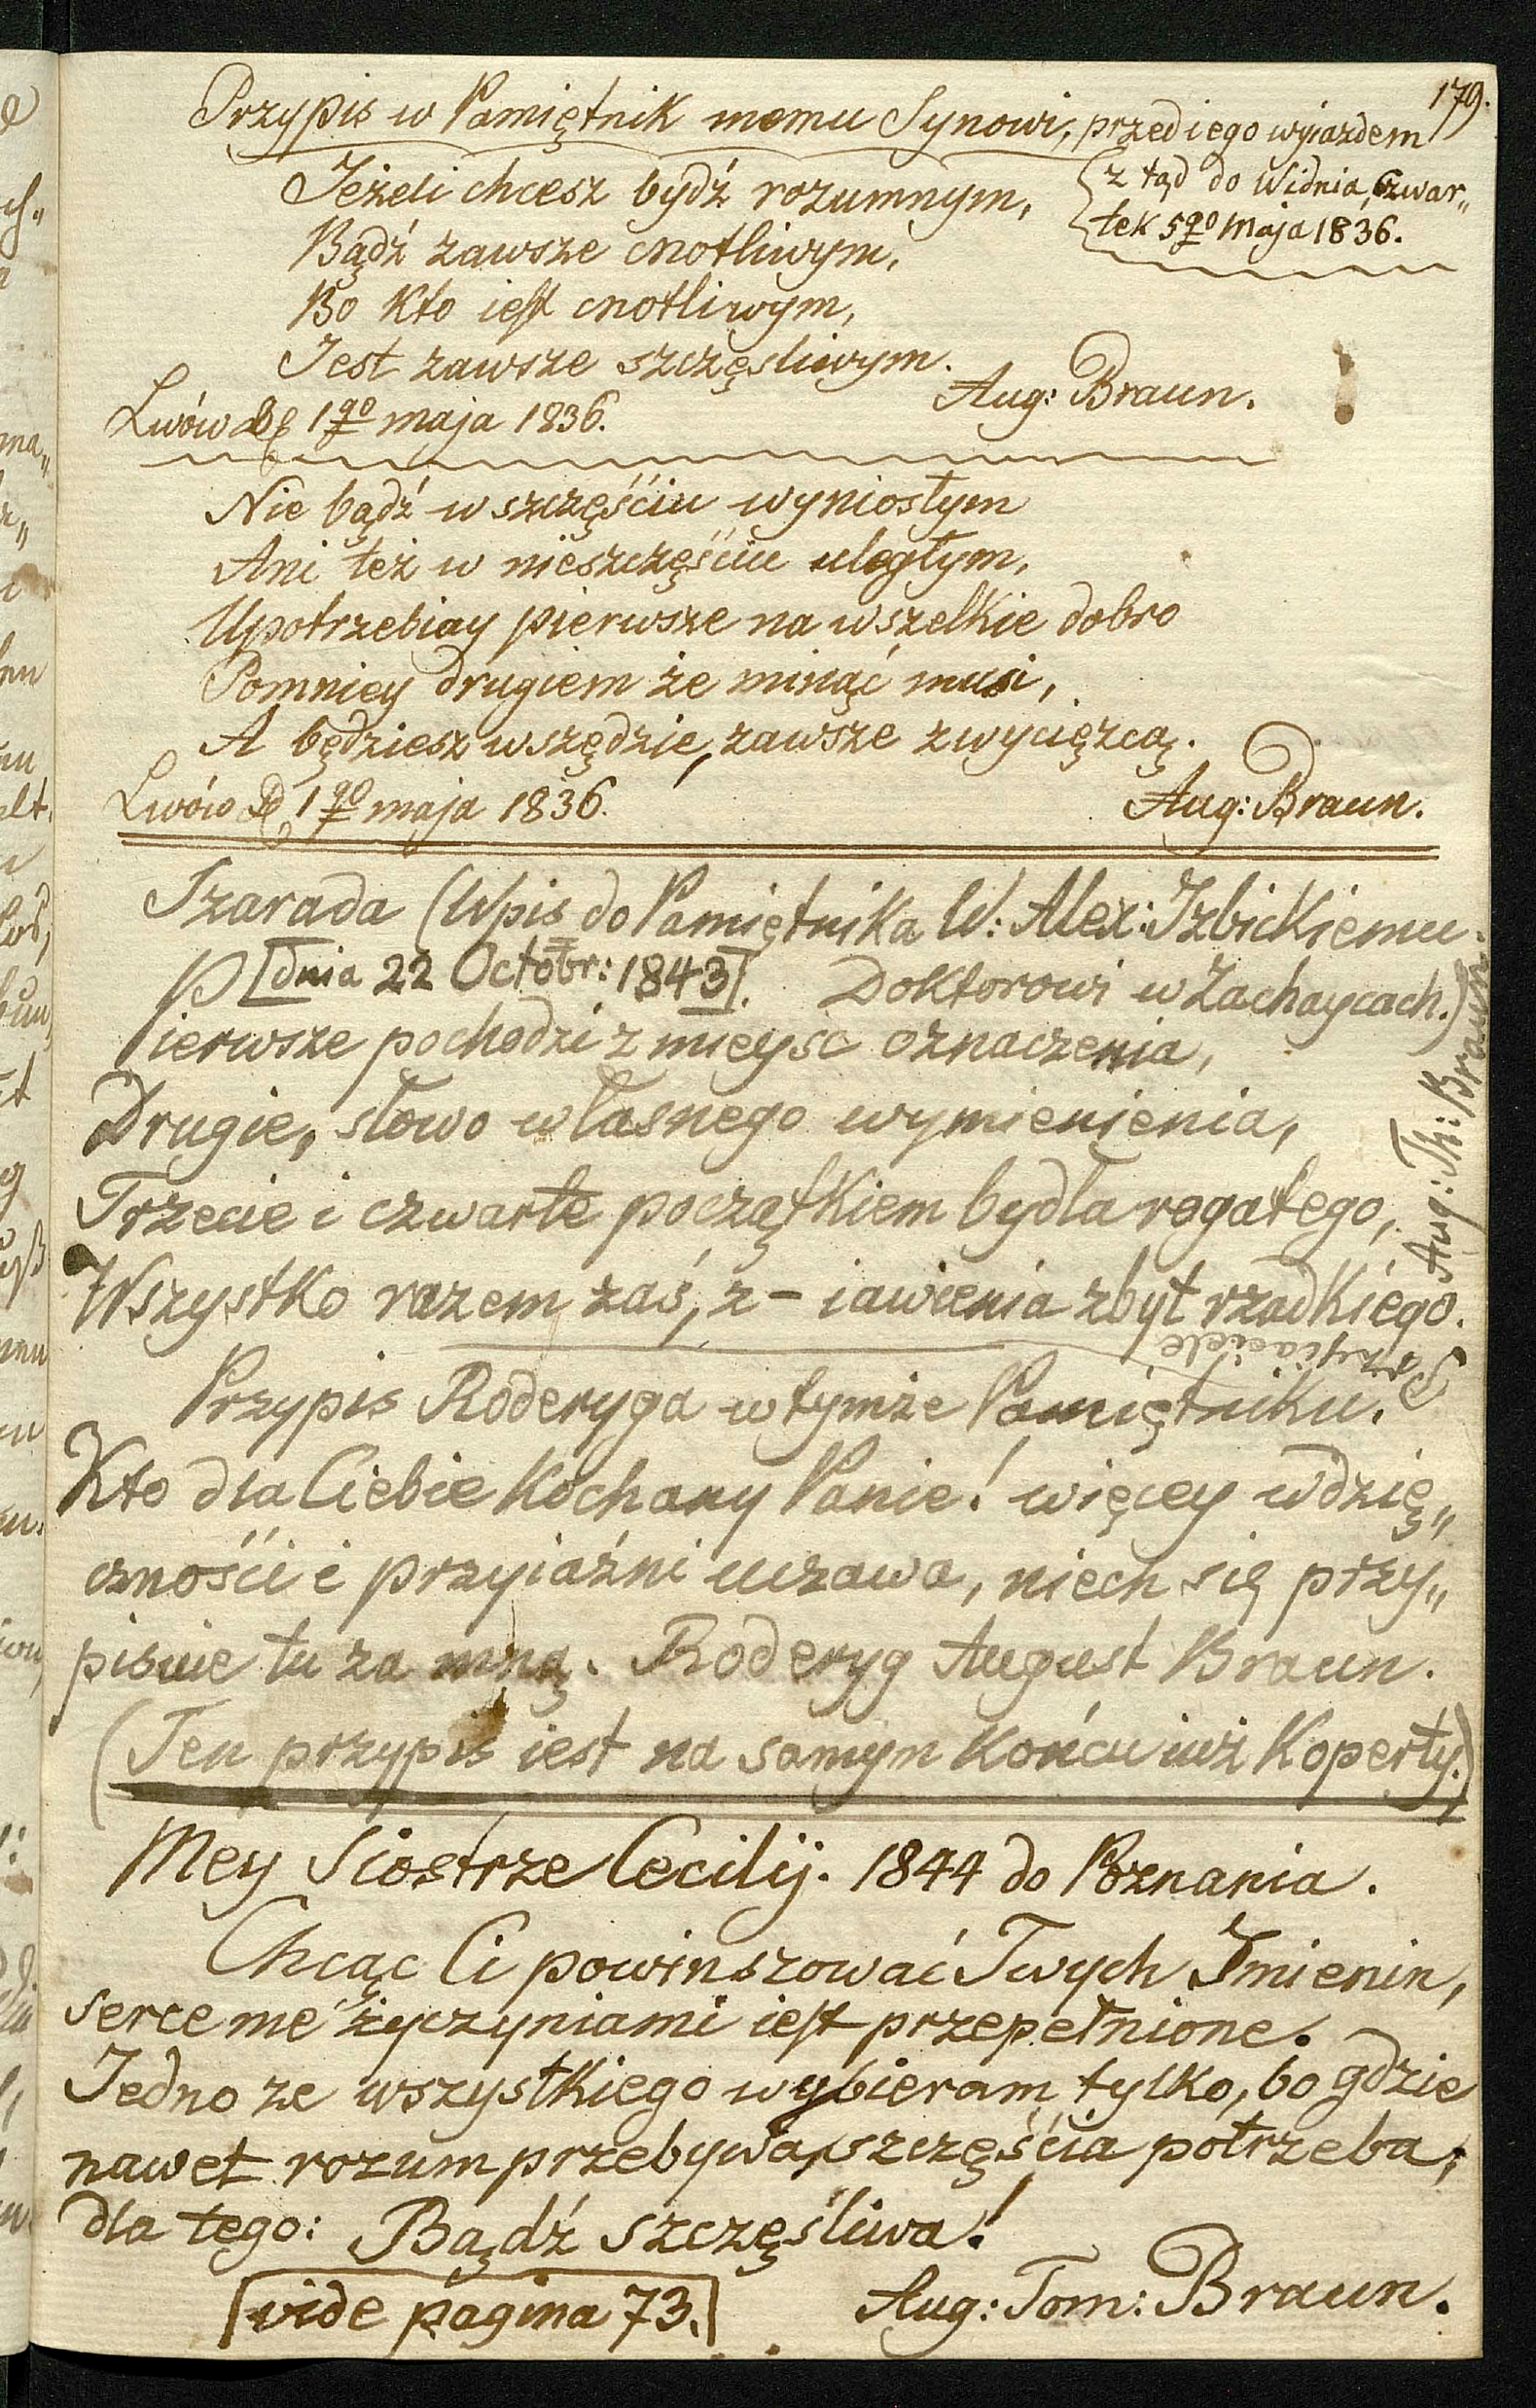 179.
Przypis w Pamiętnik memu Synowi, przed iego wyiazdem
z tąd do Widnia, Czwar„
tek 5go Maja 1836.
Jeżeli chcesz bydź rozumnym,
Bądź zawsze cnotliwym,
Bo Kto iest cnotliwym,
Jest zawsze szczęsliwym.
Aug: Braun.
Lwów d. 1go maja 1836.
Nie bądź w szczęściu wyniosłym
Ani też w nieszczęściu uległym,
Upotrzebiay pierwsze na wszelkie dobro
Pomniey drugiem że minąć musi,
A będziesz wszędzie, zawsze zwycięzcą.
Lwów d. 1go maja 1836.
Aug: Braun.
Szarada (Wpis do Pamiętnika W: Alex: Izbickiemu
[dnia 22 Octobr: 1843]. Doktorowi w Zachaycach.)
Pierwsze pochodzi z mieysc oznaczenia,
Drugie, słowo własnego wymienienia,
Trzecie i czwarte początkiem bydła rogatego,
Wszystko razem zaś, z - iawienia zbyt rzadkiégo.
Przyiaciele
Aug: Th: Braun.
Przypis Roderyga w tymże Pamiętniku.
Kto dla Ciebie Kochany Panie! więcey wdzię„
czności i przyiaźni uczawa, niech się przy„
pisuie tu za mną. Roderyg August Braun.
(Ten przypis iest na samym Końcu iuż Koperty.)
Mey Siostrze Cecilij. 1844 do Poznania.
Chcąc Ci powinszować Twych Imienin,
serce me życzyniami iest przepełnione.
Jedno ze wszystkiego wybieram tylko, bo gdzie
nawet rozum przebywa, szczęścia potrzeba,
dla tego: Bądź szczęśliwa!
[vide pagina 73.]
Aug: Tom: Braun.